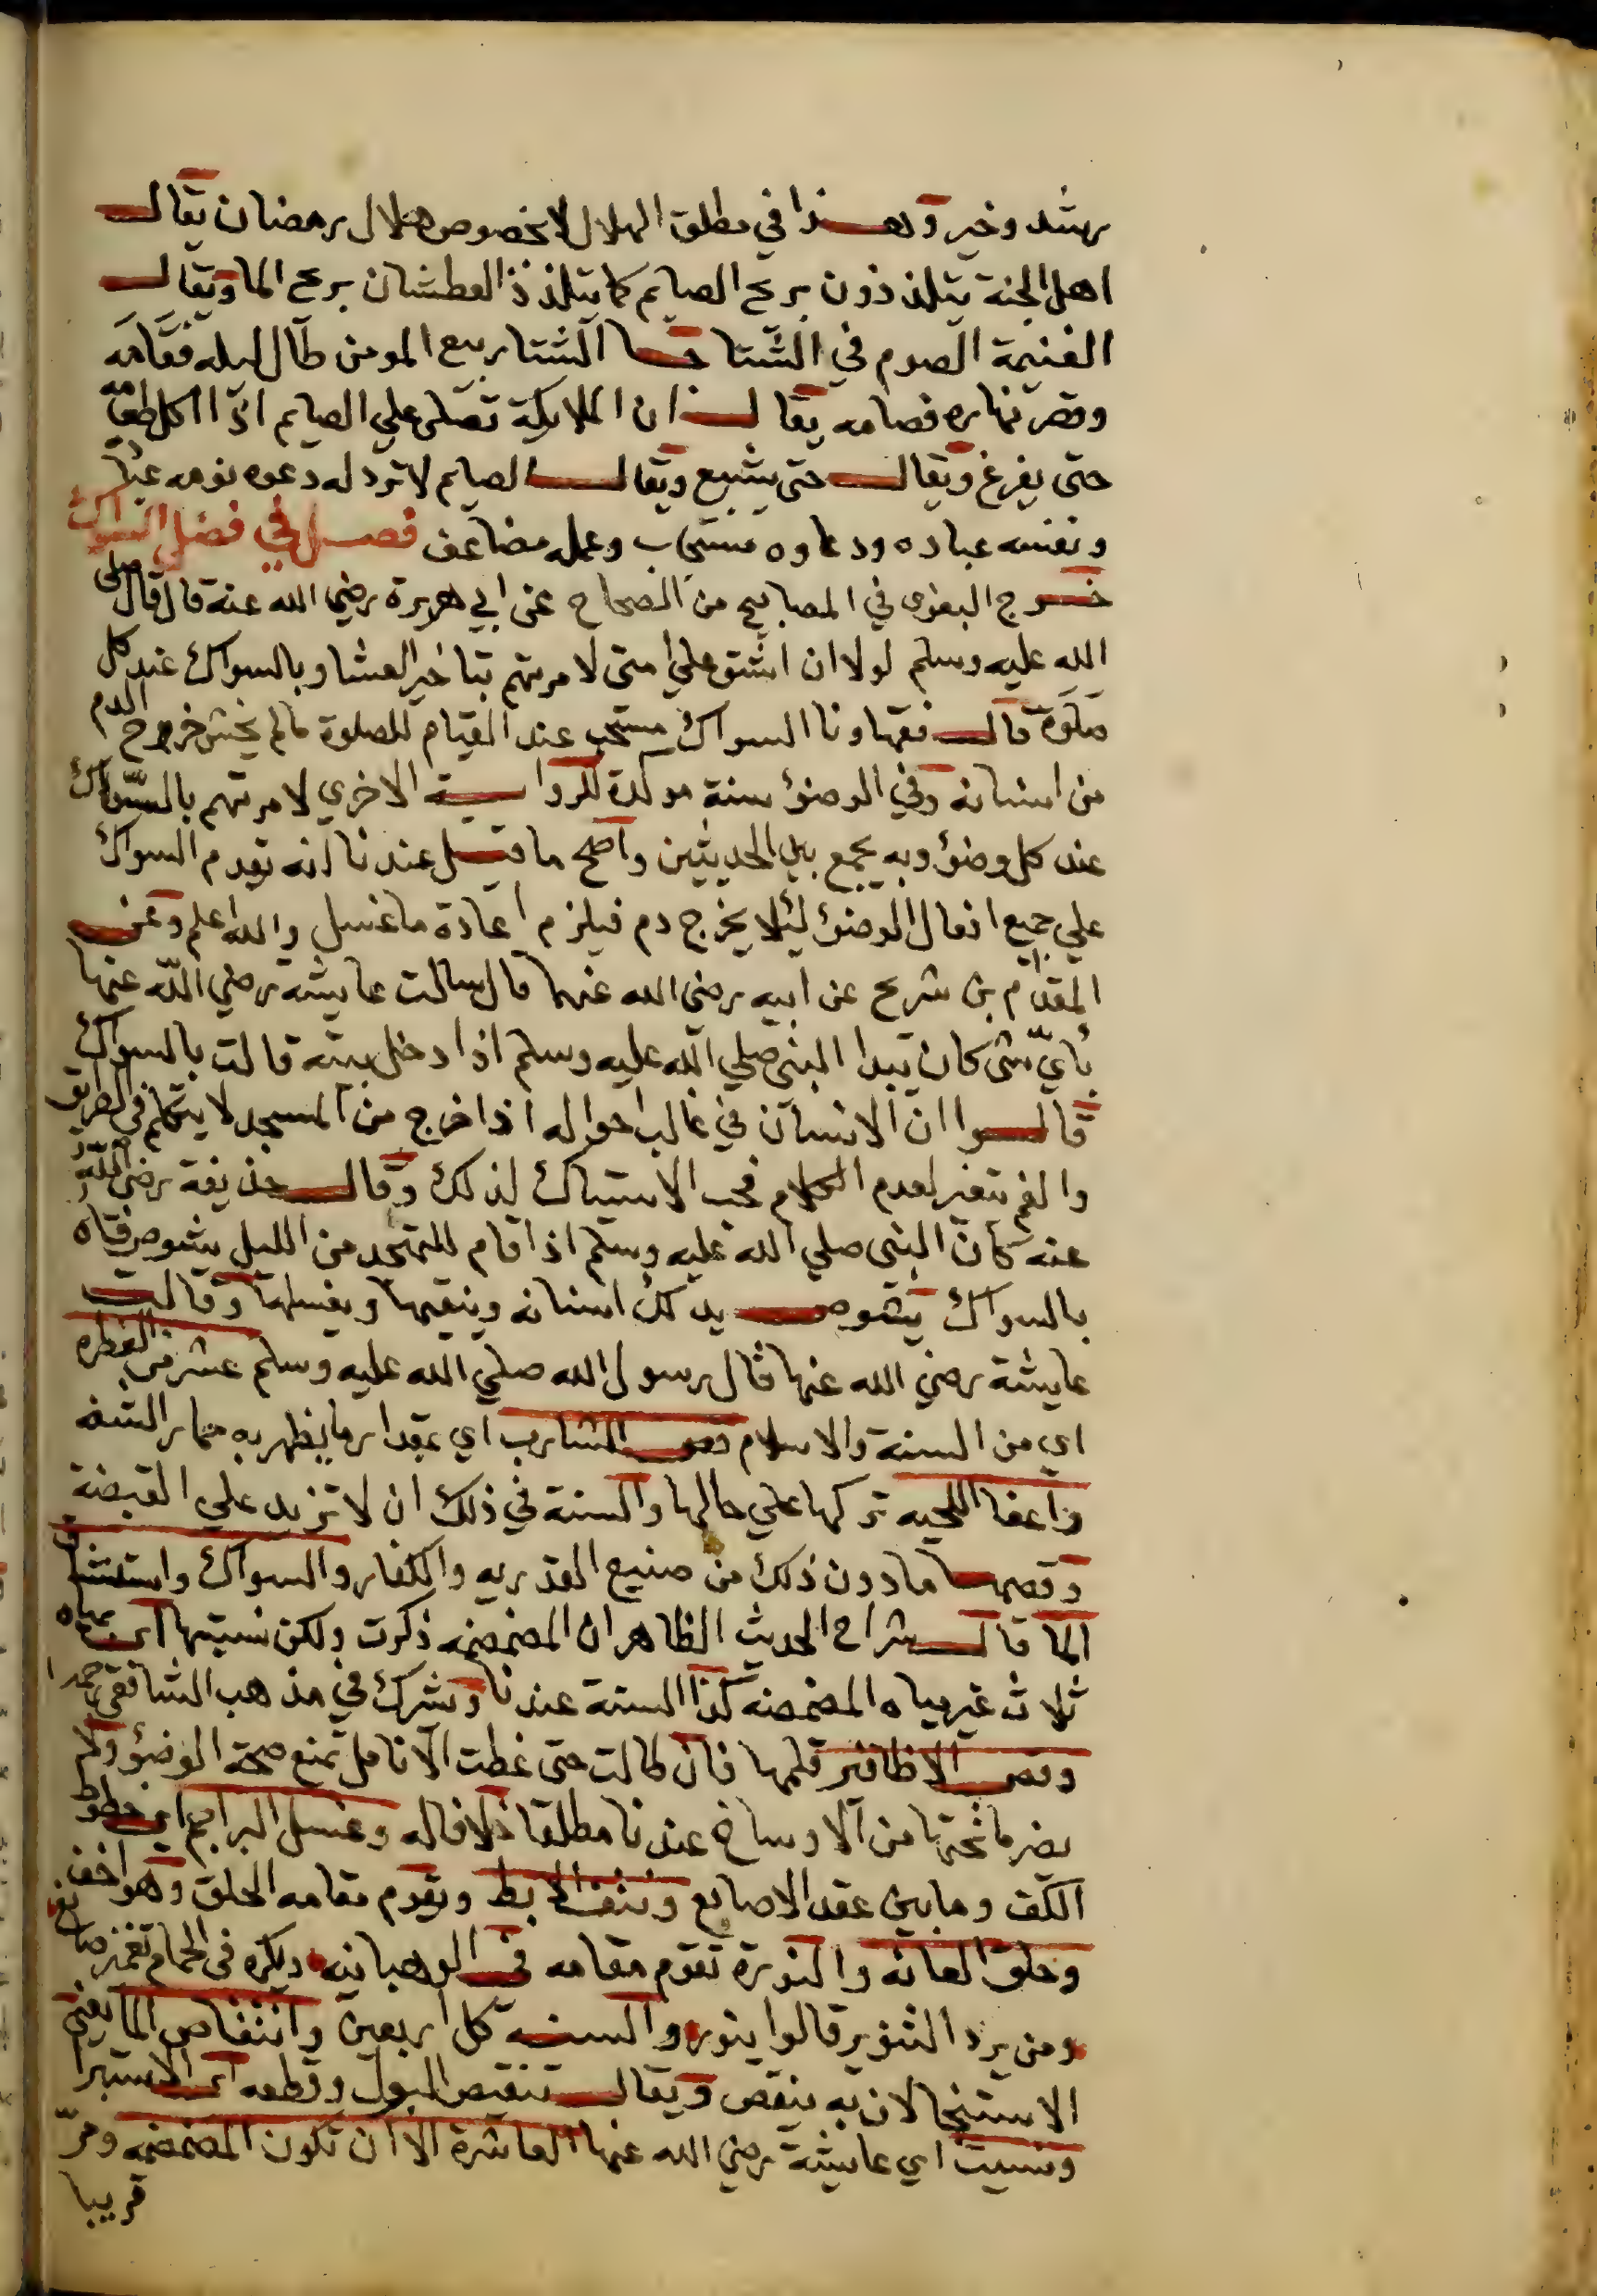 رشد وخير وهذا في مطلق الهلال لا بخصوص هلال رمضان يقال
اهل الجنة يتلذذون بريح الصايم كما يتلذذ العطشان بريح الما ويقال
الغنيمة الصوم في الشتا الشتا ربيع المومن طال ليله فقامه
وقصر نهاره فصامه يقال ان الملايكة تصلى علي الصايم اذا اكل طعامه
حتى يفرغ ويقال حتى يشبع ويقال الصايم لا ترد له دعوه نومه عبادة
ونفسه عباده ودعاوه مستجاب وعمله مضاعف فصل في فضل السواك
خرج البغوى في المصابيح من الصحاح عن ابي هريرة رضي الله عنه قال قال صلى
الله عليه وسلم لولا ان اشق علي امتى لامرتهم بتاخير العشا وبالسواك عند كل
صلوة قال فقهاونا السواك مستحب عند القيام للصلوة مالم يخش خروج الدم
من اسنانه وفي الوضؤ سنة موكدة للرواية الاخري لامرتهم بالسواك
عند كل وضؤ وبه يجمع بين الحديثين واصح ما قيل عندنا انه يقدم السواك
علي جميع افعال الوضؤ ليئلا يخرج دم فيلزم اعادة ما غسل والله اعلم وعن
المقدام بن شريح عن ابيه رضي الله عنهما قال سالت عايشة رضي الله عنها
بأيّ شى كان يبدا النبى صلي الله عليه وسلم اذا دخل بيته قالت بالسواك
قالوا ان الانسان في غالب احواله اذا خرج من المسجد لا يتكلم في الطريق
والفم يتغير لعدم الكلام فحب الاستياك لذلك وقال حذيفة رضي الله
عنه كان النبى صلي الله عليه وسلم اذا قام للتهجد من الليل يشوص فاه
بالسواك يشوص يدلك اسنانه وينقيها ويغسلها وقالت
عايشة رضي الله عنها قال رسول الله صلي الله عليه وسلم عشر من الفطره
اي من السنة والاسلام قص الشارب اي بمقدار ما يظهر به حمار الشفه
واعفا اللحيه تركها علي حالها والسنة في ذلك ان لا تزيد علي القبضة
وقصها مادون ذلك من صنيع القدريه والكفار والسواك واستنشاق
الما قال شراح الحديث الظاهر ان المضمضه ذكرت ولكن نسيتها اي بمياه
ثلاث غير مياه المضمضه كذا السنة عندنا وتشرك في مذهب الشافعي
وقص الاظافير قلمها فان طالت حتى غطت الانامل تمنع صحة الوضؤ ولم
يضر ما تحتها من الاوساخ عندنا مطلقا خلافا له وغسل البراجم اي خطوط
الكف وما بين عقد الاصابع ونتف الابط ويقوم مقامه الحلق وهو اخف
وحلق العانه والنورة تقوم مقامه في الوهبانيه ويكره في الحمام تغميز صانع
ومن يرد التنوير قالوا ينور والسنه كل اربعين وانتقاص الما يعني
الاستنجا لان به ينقص ويقال تنقيص البول وقطعه اي الاستبرا
ونسيت اي عايشة رضي الله عنها العاشرة الا ان تكون المضمضه ومرّ
قريبا